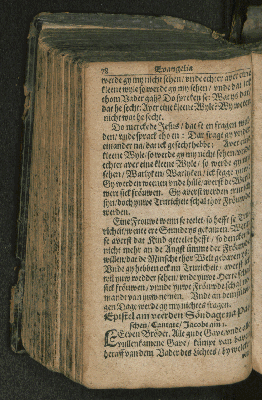 78 Euangelia
werde gy my nicht sehen / vnde echter auer eine
kleine wyle so werde gy my sehen / vnde dat ick
thom Vader gah? Do spreken se: Wat ys dat
dat he secht: Auer eine kleine Wyle? Wy weten
nicht wat he secht.
Do merckede Jesus / dat se en fragen wol-
den / vnde sprack tho en: Dar frage gy vnder
einander na / dat ick gesecht hebbe: Auer eine
kleine Wyle / so werde gy my nicht sehen / vnde
echter auer eine kleine Wyle / so werde gy my
sehen / Warlyken Warlyken / ick segge juw /
Gy werden weenen vnde hülen / auerst de Werlt
wert sick fröuwen. Gy auerst werden trurich
syn / doch juwe Truricheit schal in Fröuwde
werden.
Eine Frouwe wenn se telet / so hefft se Tru-
richeit / wente ere Stunde ys gekamen. Wenn
se auerst dat Kind getelet hefft / so dencket se
nicht mehr an de Angst / vmme der Fröuwde
willen / dat de Minsche thor Welt gebaren ys.
Vnde gy hebben ock nu Truricheit / auerst ick
wil juw wedder sehen / vnde juwe Herte schal
sick fröuwen / vnnde juwe Fröuwde schal ne-
mandt van juw nemen. Vnde an dem süluen-
gen Dage werde gy my nichtes fragen.
Epistel am veerden Söndage na Pas-
schen / Cantate / Jacobi am 1.
LEeven Bröder, Alle gude Gaue / vnde alle
vullenkamene Gaue / kümpt van bauen
heraff van dem Vader des Lichtes / by welckem